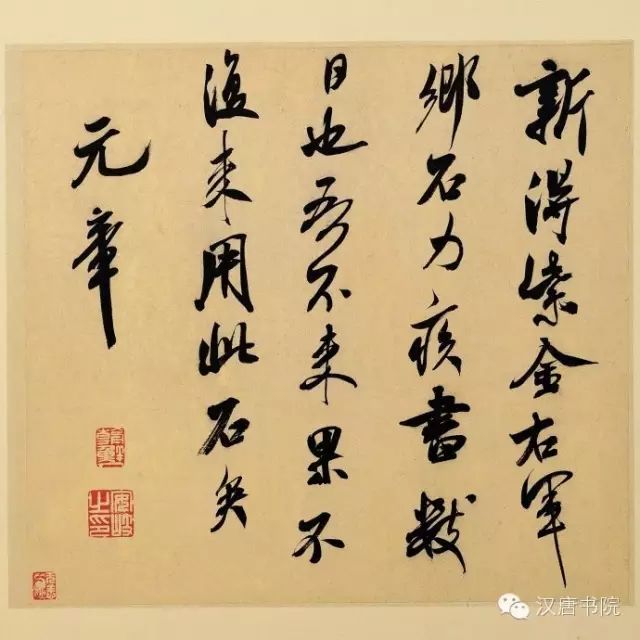 新得紫金右軍
鄉石力疾書數
日也吾不来果不
復来用此石矣
元章
汉唐书院